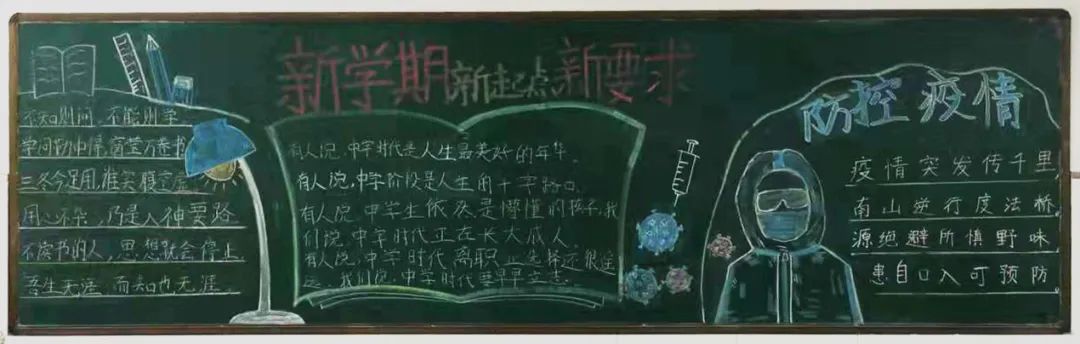 新学期新起点新要求
不知则问，不能则学
学问勤中得，萤窗万卷书
三冬今足用，谁笑腹空虚
用心不杂，乃是入神要路
不读书的人，思想就会停止
吾生无涯，而知也无涯。
有人说，中学时代是人生最美好的年华。
有人说，中学阶段是人生的十字路口。
有人说，中学生依然是懵懂的孩子，我
们说，中学时代正在长大成人。
有人说，中学时代离职业选择还很遥
远，我们说，中学时代要早早立志。
防控疫情
疫情突发传千里，
南山逆行度法桥。
源绝避所慎野味，
患自口入可预防。